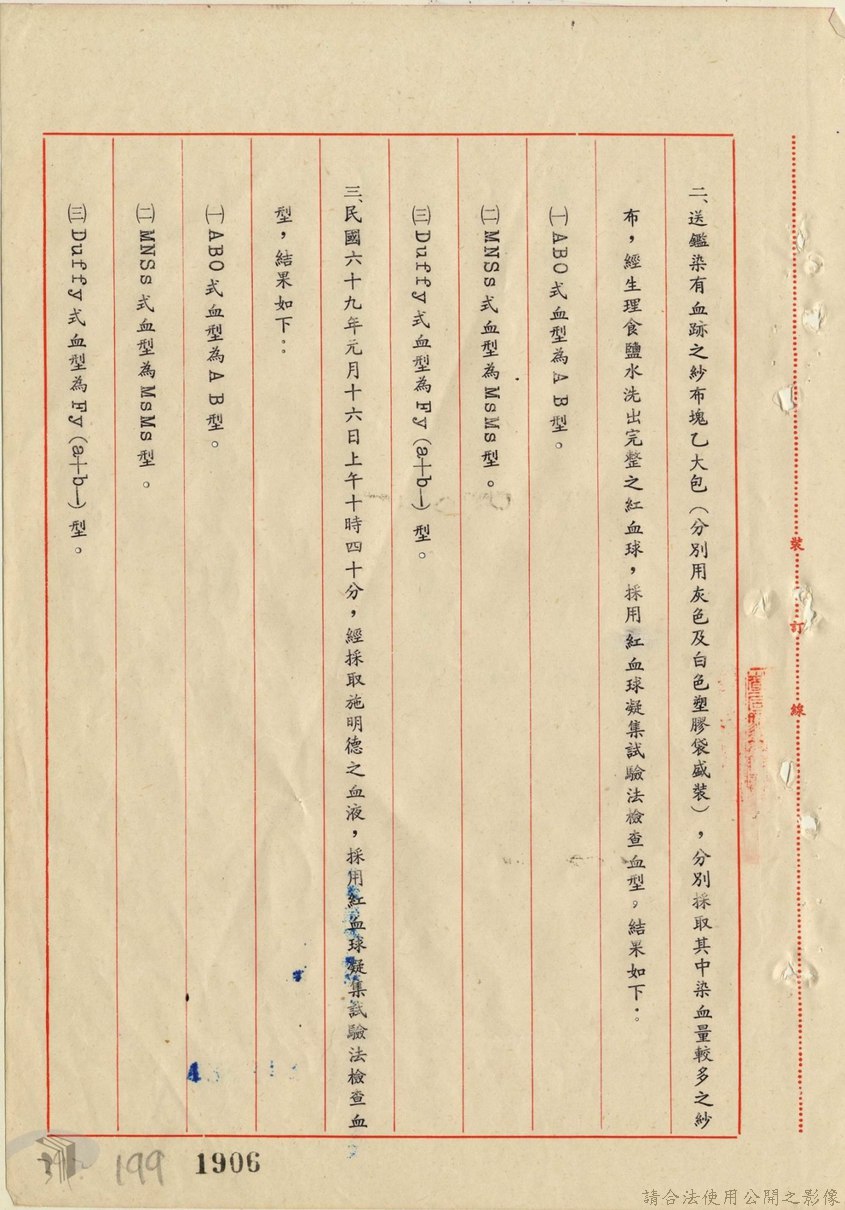 二、送鑑染有血跡之紗布塊乙大包（分別用灰色及白色塑膠袋盛裝），分別採取其中染血量較多之紗
布，經生理食鹽水洗出完整之紅血球，採用紅血球凝集試驗法檢查血型，結果如下：
㈠ABO式血型為AB型。
㈡MNSs式血型為MsMs型。
㈢Duffy式血型為Fy(a+b-)型。
三、民國六十九年元月十六日上午十時四十分，經採取施明德之血液，採用紅血球凝集試驗法檢查血
型，結果如下：
㈠ABO式血型為AB型。
㈡MNSs式血型為MsMs型。
㈢Duffy式血型為Fy(a+b-)型。
裝
訂
線
199
1906
請合法使用公開之影像